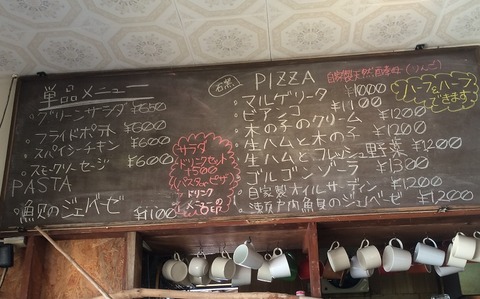 単品メニュー
グリーンサラダ ¥650
フライドポテト ¥600
スパイシーチキン ¥600
スモークソーセージ ¥600
PASTA
魚貝のジェノベーゼ ¥1100
サラダ
ドリンクセット
+500
パスタ・ピザ
ドリンク
メニューの
石窯 PIZZA
自家製天然酵母(りんご)
ハーフ&ハーフ
できます
マルゲリータ ¥1000
ビアンコ ¥1100
木の子のクリーム ¥1200
生ハムと木の子 ¥1200
生ハムとフレッシュ野菜 ¥1200
ゴルゴンゾーラ ¥1300
自家製オイルサーディン ¥1200
瀬戸内魚貝のジェノベーゼ ¥1200